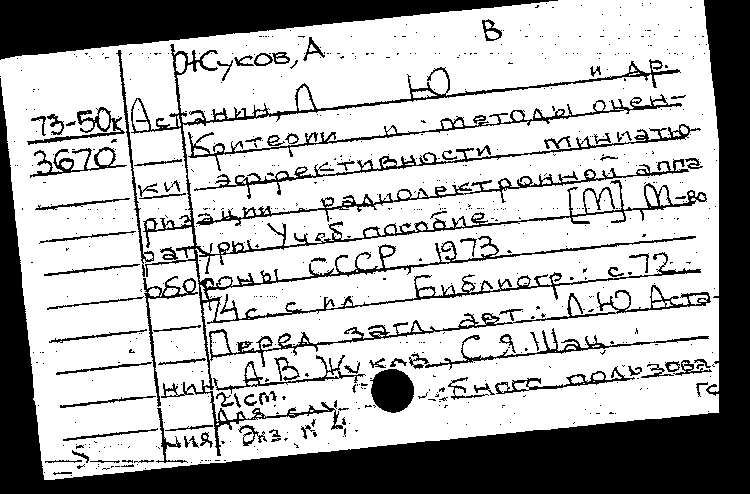 Жуков, А В
73-50к Астанин, Л Ю и др.
3670 Критерии и методы оцен-
ки эффективности миниатю-
ризации радиолектронной аппа
ратуры. Учеб. пособие. [М], М-во
обороны СССР, 1973.
74с. с ил. Библиогр.: с.72
Перед загл. авт.: Л.Ю Аста-
нин, А.В. Жуков, С.Я.Шац.
21ст.
Для слу бного пользова-
ния. Экз. №4 ГС
5